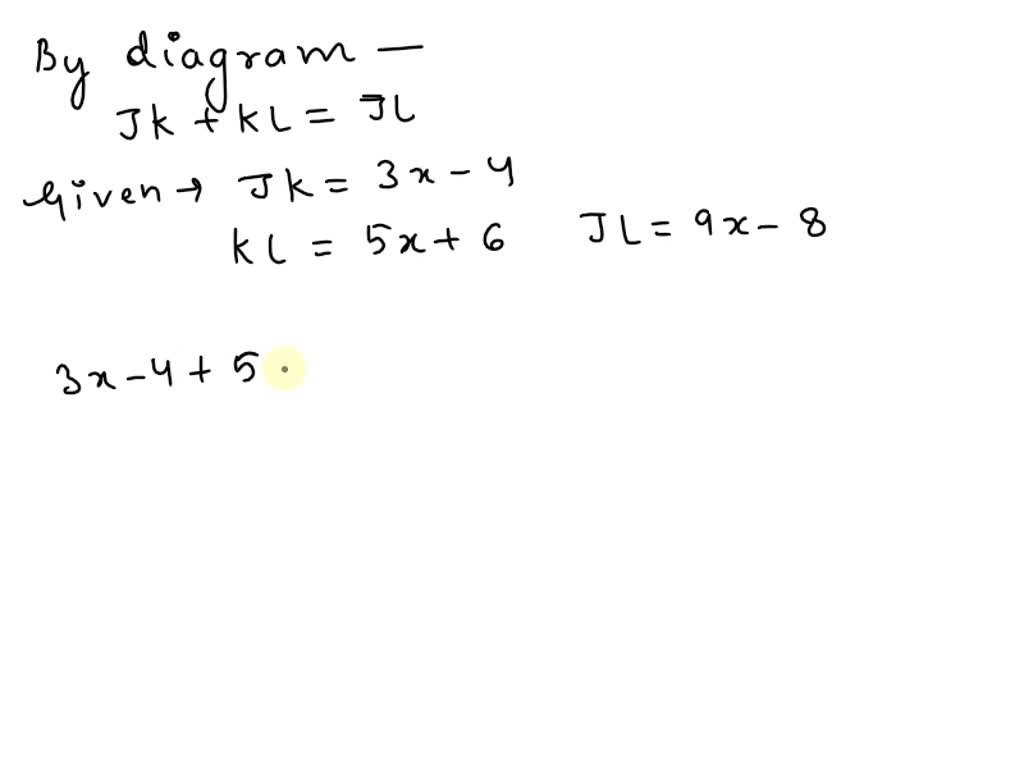 By diagram —
Jk + kL = JL
Given → Jk = 3x - 4
kL = 5x + 6 JL = 9x - 8
3x - 4 + 5